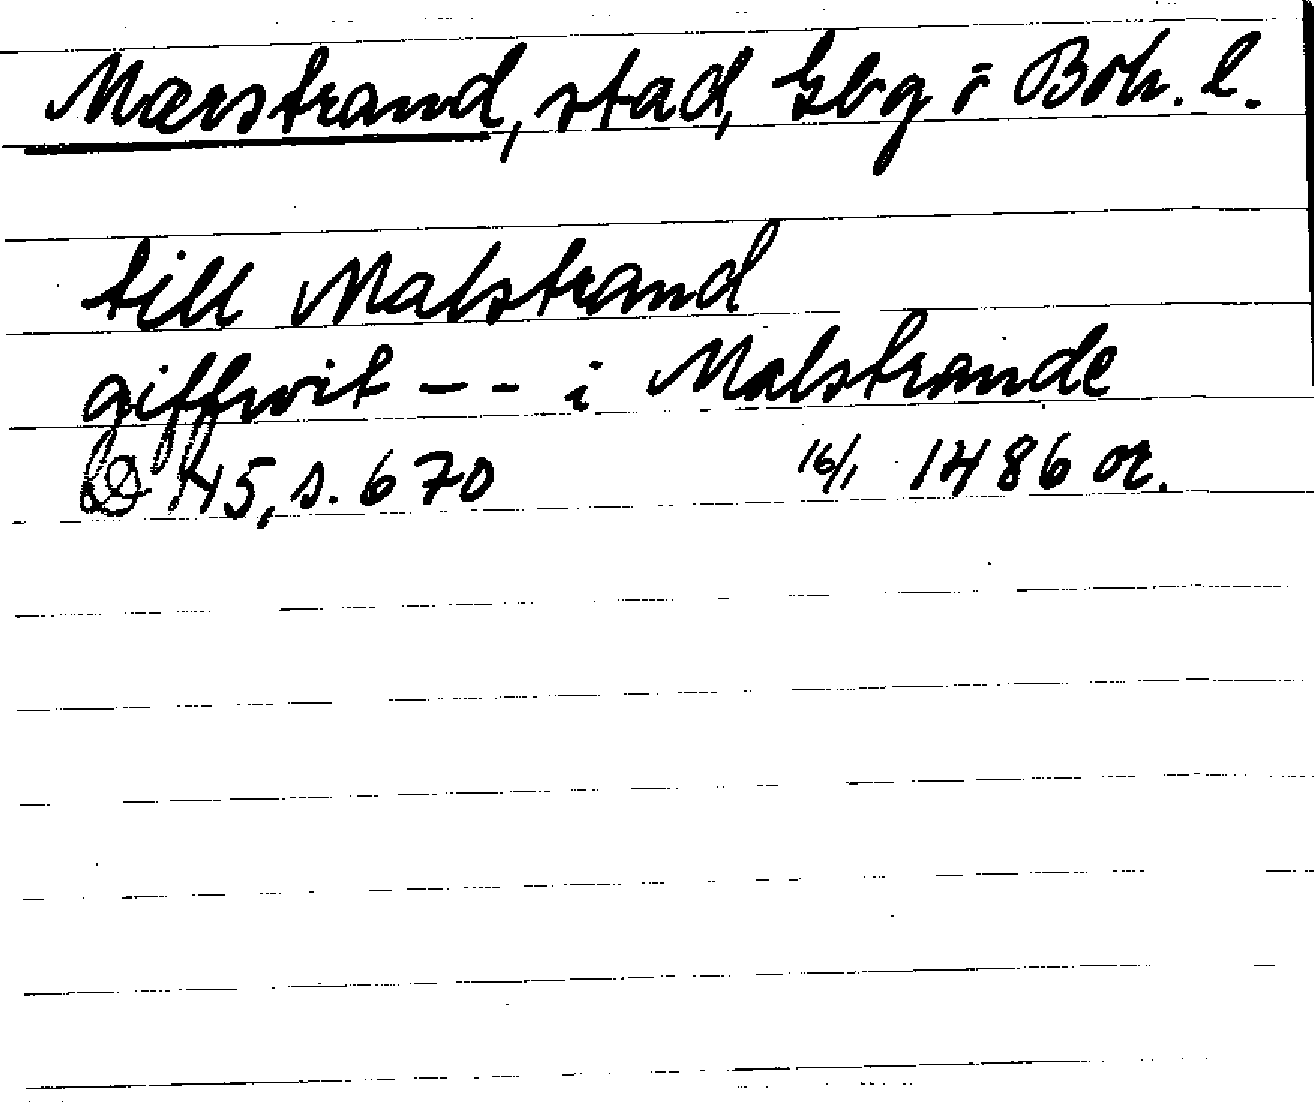 Marstrand, stad, Gbg o Boh. l.
till Malstrand
giffwit -- i Malstrande
D 45, s. 670 16/1 1486 or.